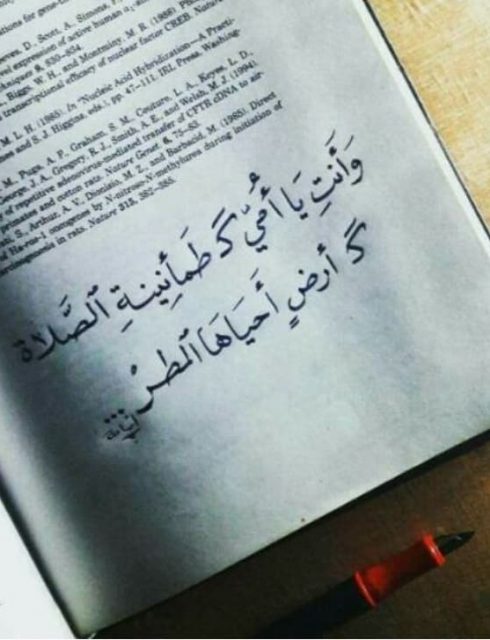 ations for gene-
nes, D., Scott, A., Simons, F.
vel expression of active human
chniques 6, 630–634.
, Biggs, W. H., and Montminy, M. R. (1988). Ph
d transcriptional efficacy of nuclear factor CREB. Nature
M. L. H. (1985). In "Nucleic Acid Hybridization—A Practi-
mes and S. J. Higgins, eds.), pp. 47–111. IRL Press, Washing-
M., Pugs, A. P., Graham, S. M., Couture, L. A., Koyne, L. D.,
George, J. A., Gregory, R. J., Smith, A. E., and Welsh, M. J. (1994).
of repetitive adenovirus-mediated transfer of CFTR cDNA to air-
rimates and cotton rats. Nature Genet. 6, 75–83.
S., Arthur, A. V., Dionisio, M. Z., and Barbacid, M. (1985). Direct
Ha-ras-1 oncogenes by N-nitroso-N-methylurea during initiation of
rcinogenesis in rats. Nature 315, 382–385.
وَأَنتِ يَا أُمِّي كَـ طَمَأنِينةِ ٱلصَّلاة
كَـ أرضٍ أَحيَاهَا ٱلمَطرُ